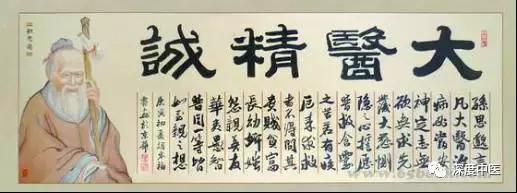 大醫精誠
孫思邈言
凡大醫治
病必當安
神定志無
欲無求先
發大慈惻
隱之心誓願
普救含靈
之苦若有疾
厄來求救
者不得問其
貴賤貧富
長幼妍媸
怨親善友
華夷愚智
普同一等皆
如至親之想
庚寅初夏
深度中医